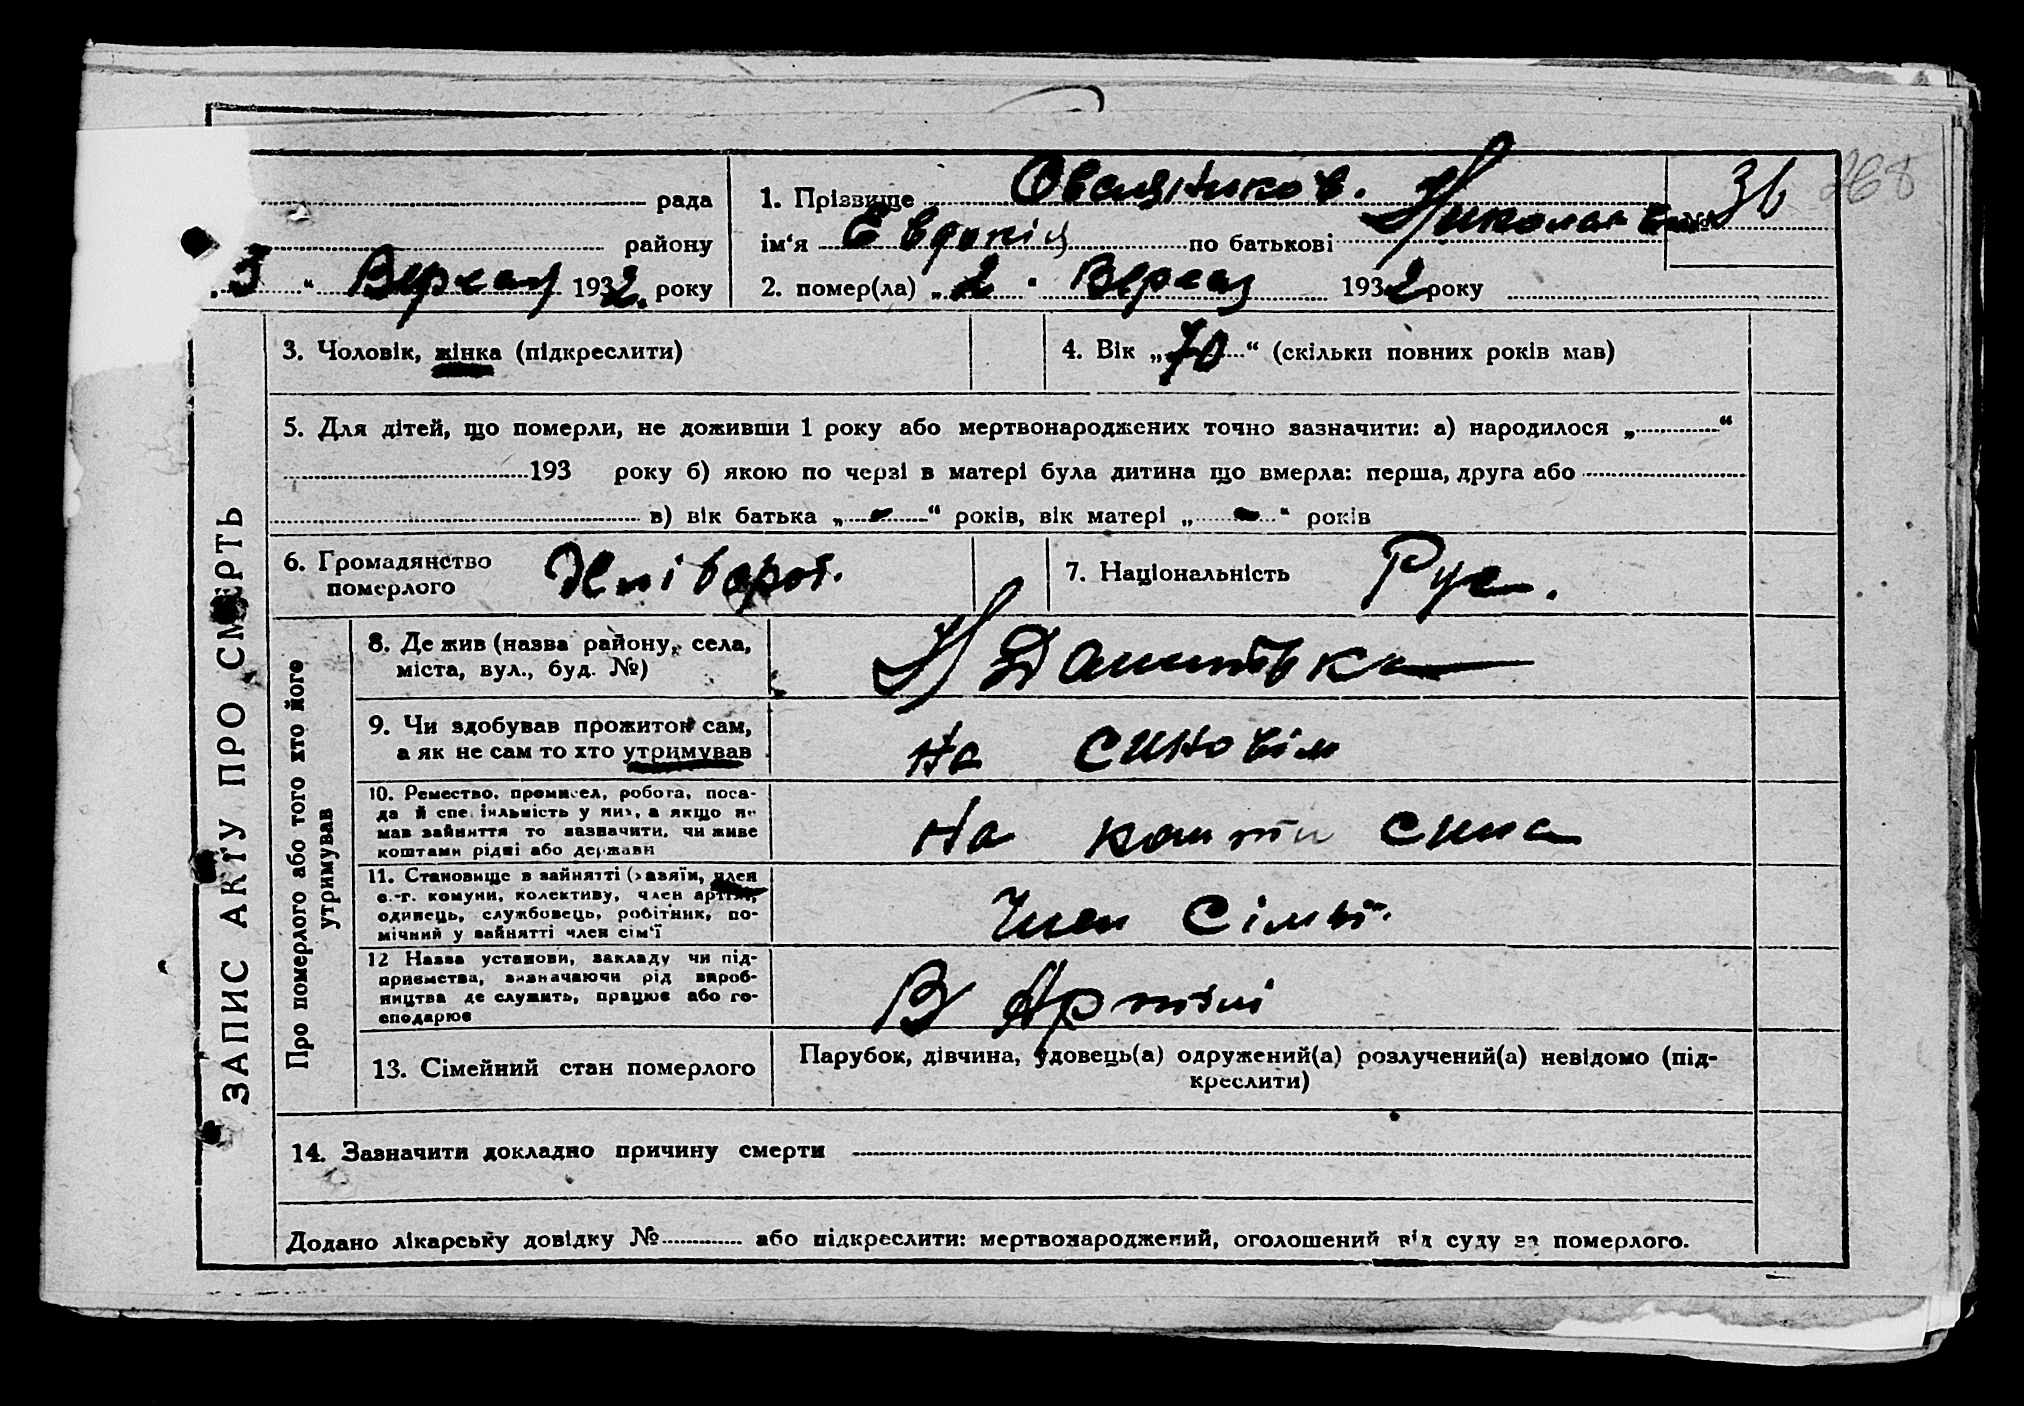 рада
району
„ 3 “ Версая 1932. року
1. Прізвище Овсяников.
ім‘я Евдокія по батькові Николаевна
№ 36
268
2. помер(ла) „ 2 “ Версая 1932 року
3. Чоловік, жінка (підкреслити)
4. Вік „ 70 “ (скільки повних років мав)
5. Для дітей, що померли, не доживши 1 року або мертвонароджених точно зазначити: а) народилося „ “
193 року б) якою по черзі в матері була дитина що вмерла: перша, друга або
в) вік батька „ - “ років, вік матері „ - “ років
6. Громадянство
померлого
7. Національність Рус.
ЗАПИС АКТУ ПРО СМЕРТЬ
Про померлого або того хто його
утримував
8. Де жив (назва району, села,
міста, вул., буд. №)
9. Чи здобував прожиток сам,
а як не сам то хто утримував
на синовім
10. Ремество, промисел, робота, поса-
да й спеціяльність у них, а якщо не
мав зайняття то зазначити, чи живе
коштами рідні або держави
На кошти сина
11. Становище в зайнятті (хазяїн, член
с.-г. комуни, колективу, член артілі,
одинець, службовець, робітник, по-
мічний у зайнятті член сім‘ї
Член Сімьі.
12 Назва установи, закладу чи під-
приємства, визначаючи рід вироб-
ництва де служить, працює або го-
сподарює
В Артілі
13. Сімейний стан померлого
Парубок, дівчина, удовець(а) одружений(а) розлучений(а) невідомо (під-
креслити)
14. Зазначити докладно причину смерти
Додано лікарську довідку № або підкреслити: мертвонароджений, оголошений від суду за померлого.